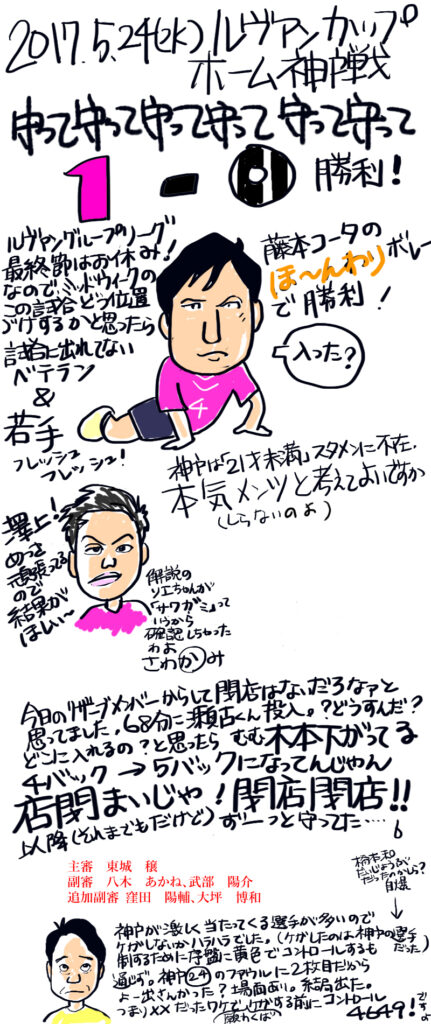 2017.5.24(水)ルヴァンカップ
ホーム神戸戦
守って守って守って守って守って守って
1-0 勝利!
ルヴァングループリーグ
最終節はお休み!
なので、ミッドウィークの
この試合どう位置
づけするかと思ったら
試合に出れてない
ベテラン
&
若手
フレッシュ
フレッシュ!
藤本コータの
ほ〜んわりボレー
で勝利!
入った?
4
神戸は「21才未満」スタメンに不在.
本気メンツと考えてよいですか
(しらないのよ)
澤上!
めっさ
頑張ってる
ので
結果が
ほしい〜
解説の
ソエちゃんが
「サワガミ」って
いうから
確認しちゃった
わよ
さわかみ
今日のリザーブメンバーからして閉店はないだろなァと
思ってました。68分に瀬古くん投入。?どうすんだ?
どこに入れるの?と思ったら むむ木本下がってる
4バック→5バックになってんじゃん
店閉まいじゃ!閉店閉店!!
以降(それまでもだけど)ずーっと守ってた…
主審 東城 穣
副審 八木 あかね、武部 陽介
追加副審 窪田 陽輔、大坪 博和
神戸が激しく当たってくる選手が多いので
ケガしないかハラハラでした。(ケガしたのは神戸の選手だった)
制するために序盤に黄色でコントロールするも
通じず。神戸24のファウルに2枚目だから
よー出さんかった?場面あり。結局出た。
つまり××だったワケで、ケガする前にコントロール
4649!ですよ